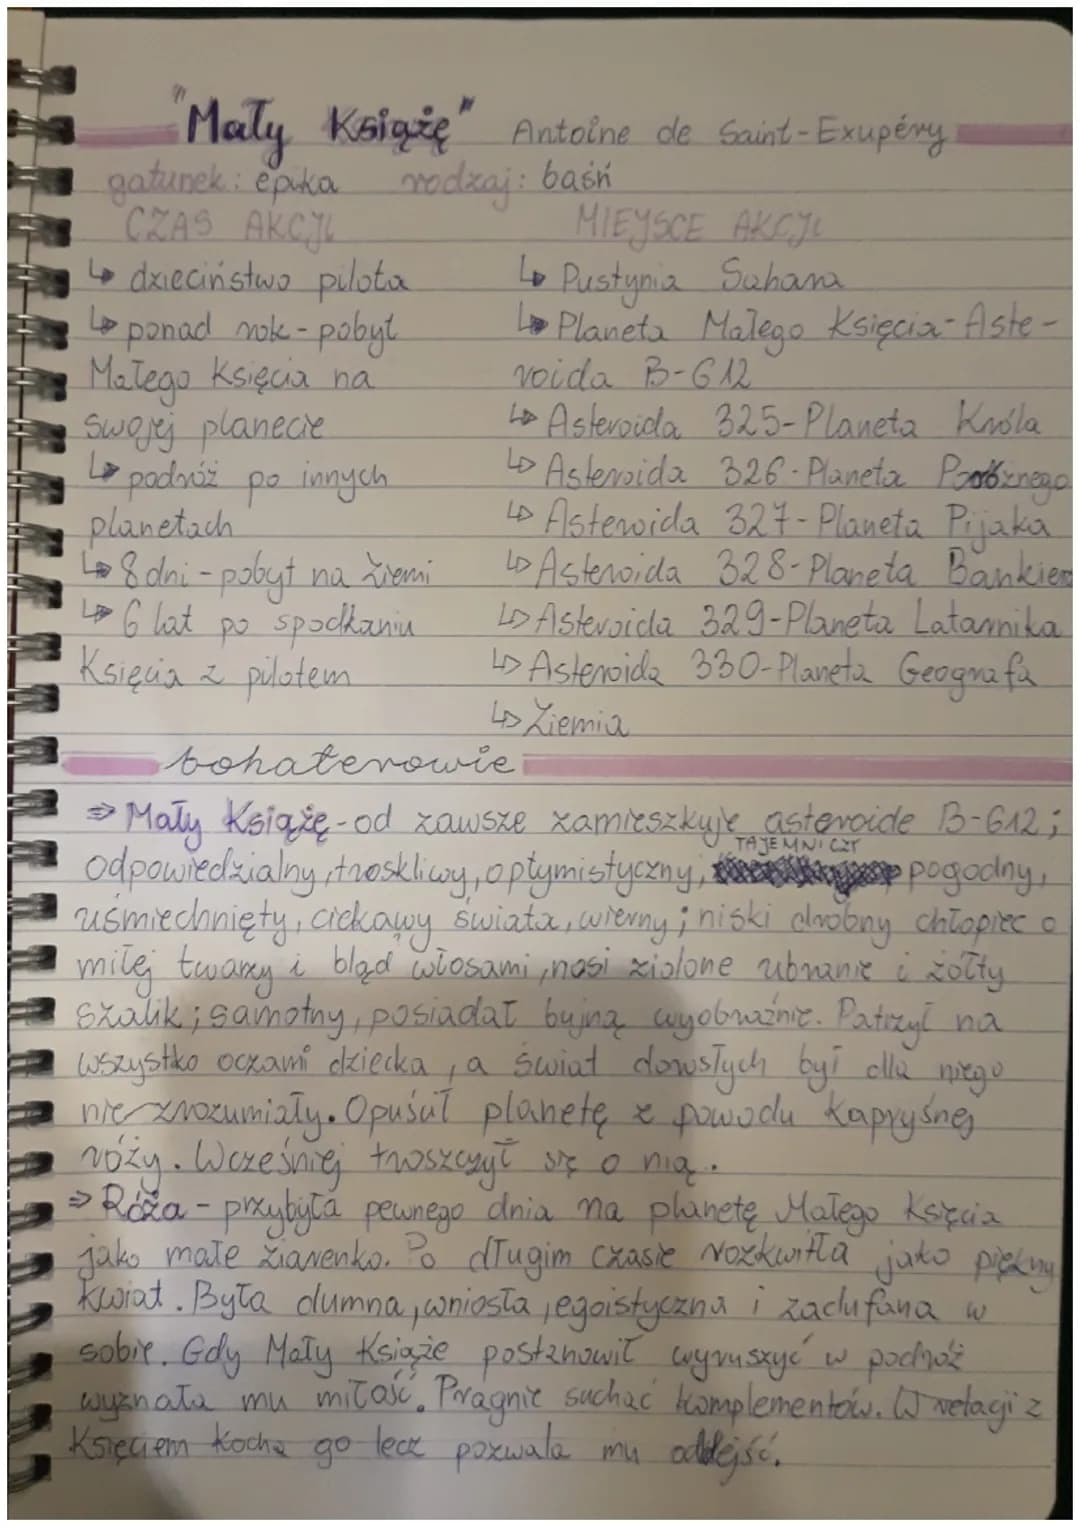 "Mały Książę" Antoine de Saint-Exupéry
gatunek: epika rodzaj: baśń
CZAS AKCJI MIEJSCE AKCJI
↳ dzieciństwo pilota ↳ Pustynia Sahara
↳ ponad rok - pobyt ↳ Planeta Małego Księcia - Aste-
Małego Księcia na roida B-612
swojej planecie ↳ Asteroida 325 - Planeta Króla
↳ podróż po innych ↳ Asteroida 326 - Planeta Próżnego
planetach ↳ Asteroida 327 - Planeta Pijaka
↳ 8 dni - pobyt na Ziemi ↳ Asteroida 328 - Planeta Bankiera
↳ 6 lat po spodkaniu ↳ Asteroida 329 - Planeta Latarnika
Księcia z pilotem ↳ Asteroida 330 - Planeta Geografa
↳ Ziemia
bohaterowie
⇒ Mały Książę - od zawsze zamieszkuje asteroide B-612;
odpowiedzialny, troskliwy, optymistyczny, TAJEMNICZY pogodny,
uśmiechnięty, ciekawy świata, wierny; niski drobny chłopiec o
miłej twarzy i bląd włosami, nosi zielone ubranie i żółty
szalik; samotny, posiadał bujną wyobraźnie. Patrzył na
wszystko oczami dziecka, a świat dorosłych był dla niego
nie zrozumiały. Opuścił planetę z powodu kapryśnej
róży. Wcześniej troszczył się o nią.
⇒ Róża - przybyła pewnego dnia na planetę Małego Księcia
jako małe ziarenko. Po długim czasie rozkwitła jako piękny
kwiat. Była dumna, wniosła, egoistyczna i zadufana w
sobie. Gdy Mały Książe postanowił wyruszyć w podróż
wyznała mu miłość. Pragnie suchać komplementów. W relacji z
Księciem kocha go lecz pozwala mu odejść.